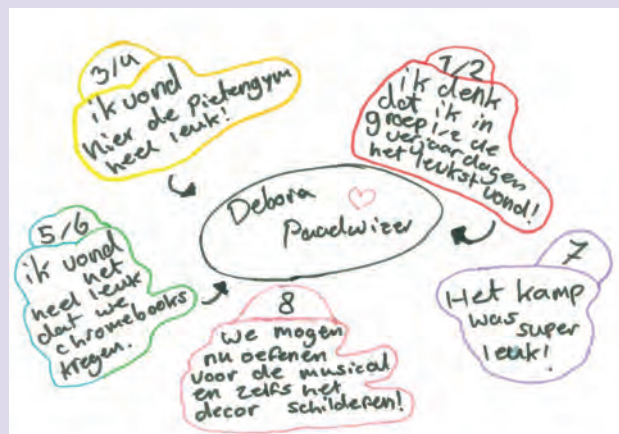 3/4
ik vond
hier de pietengym
heel leuk!
1/2
ik denk
dat ik in
groep 1/2 de
verjaardagen
het leukst vond!
Debora
5/6
ik vond
het
heel leuk
dat we
chromebooks
kregen.
8
we mogen
nu oefenen
voor de musical
en zelfs het
decor schilderen!
7
Het kamp
was
super
leuk!